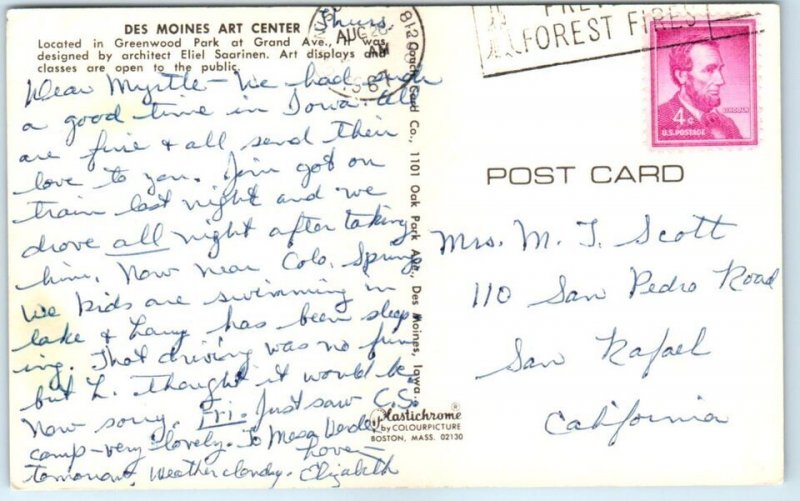 DES MOINES ART CENTER
Located in Greenwood Park at Grand Ave., it was
designed by architect Eliel Saarinen. Art displays and
classes are open to the public.
Thurs.
Dear Myrtle - We had such
a good time in Iowa. All
are fine & all send their
love to you. Jim got on
train last night and we
drove all night after taking
him. Now near Colo. Springs
We kids are swimming in
lake & Lang has been sleep
ing. That driving was no fun
but L. thought it would be.
Now sorry. Fri. Just saw C.S.
camp - very lovely. To Mesa Verde
tomorrow. Weather cloudy. Love -
Elizabeth
AUG 26
AM
FOREST FIRES
LINCOLN
4¢
U.S. POSTAGE
Card Co., 1101 Oak Park Ave., Des Moines, Iowa
POST CARD
Mrs. M. T. Scott
110 San Pedro Road
San Rafael
California
Plastichrome®
by COLOURPICTURE
BOSTON, MASS. 02130